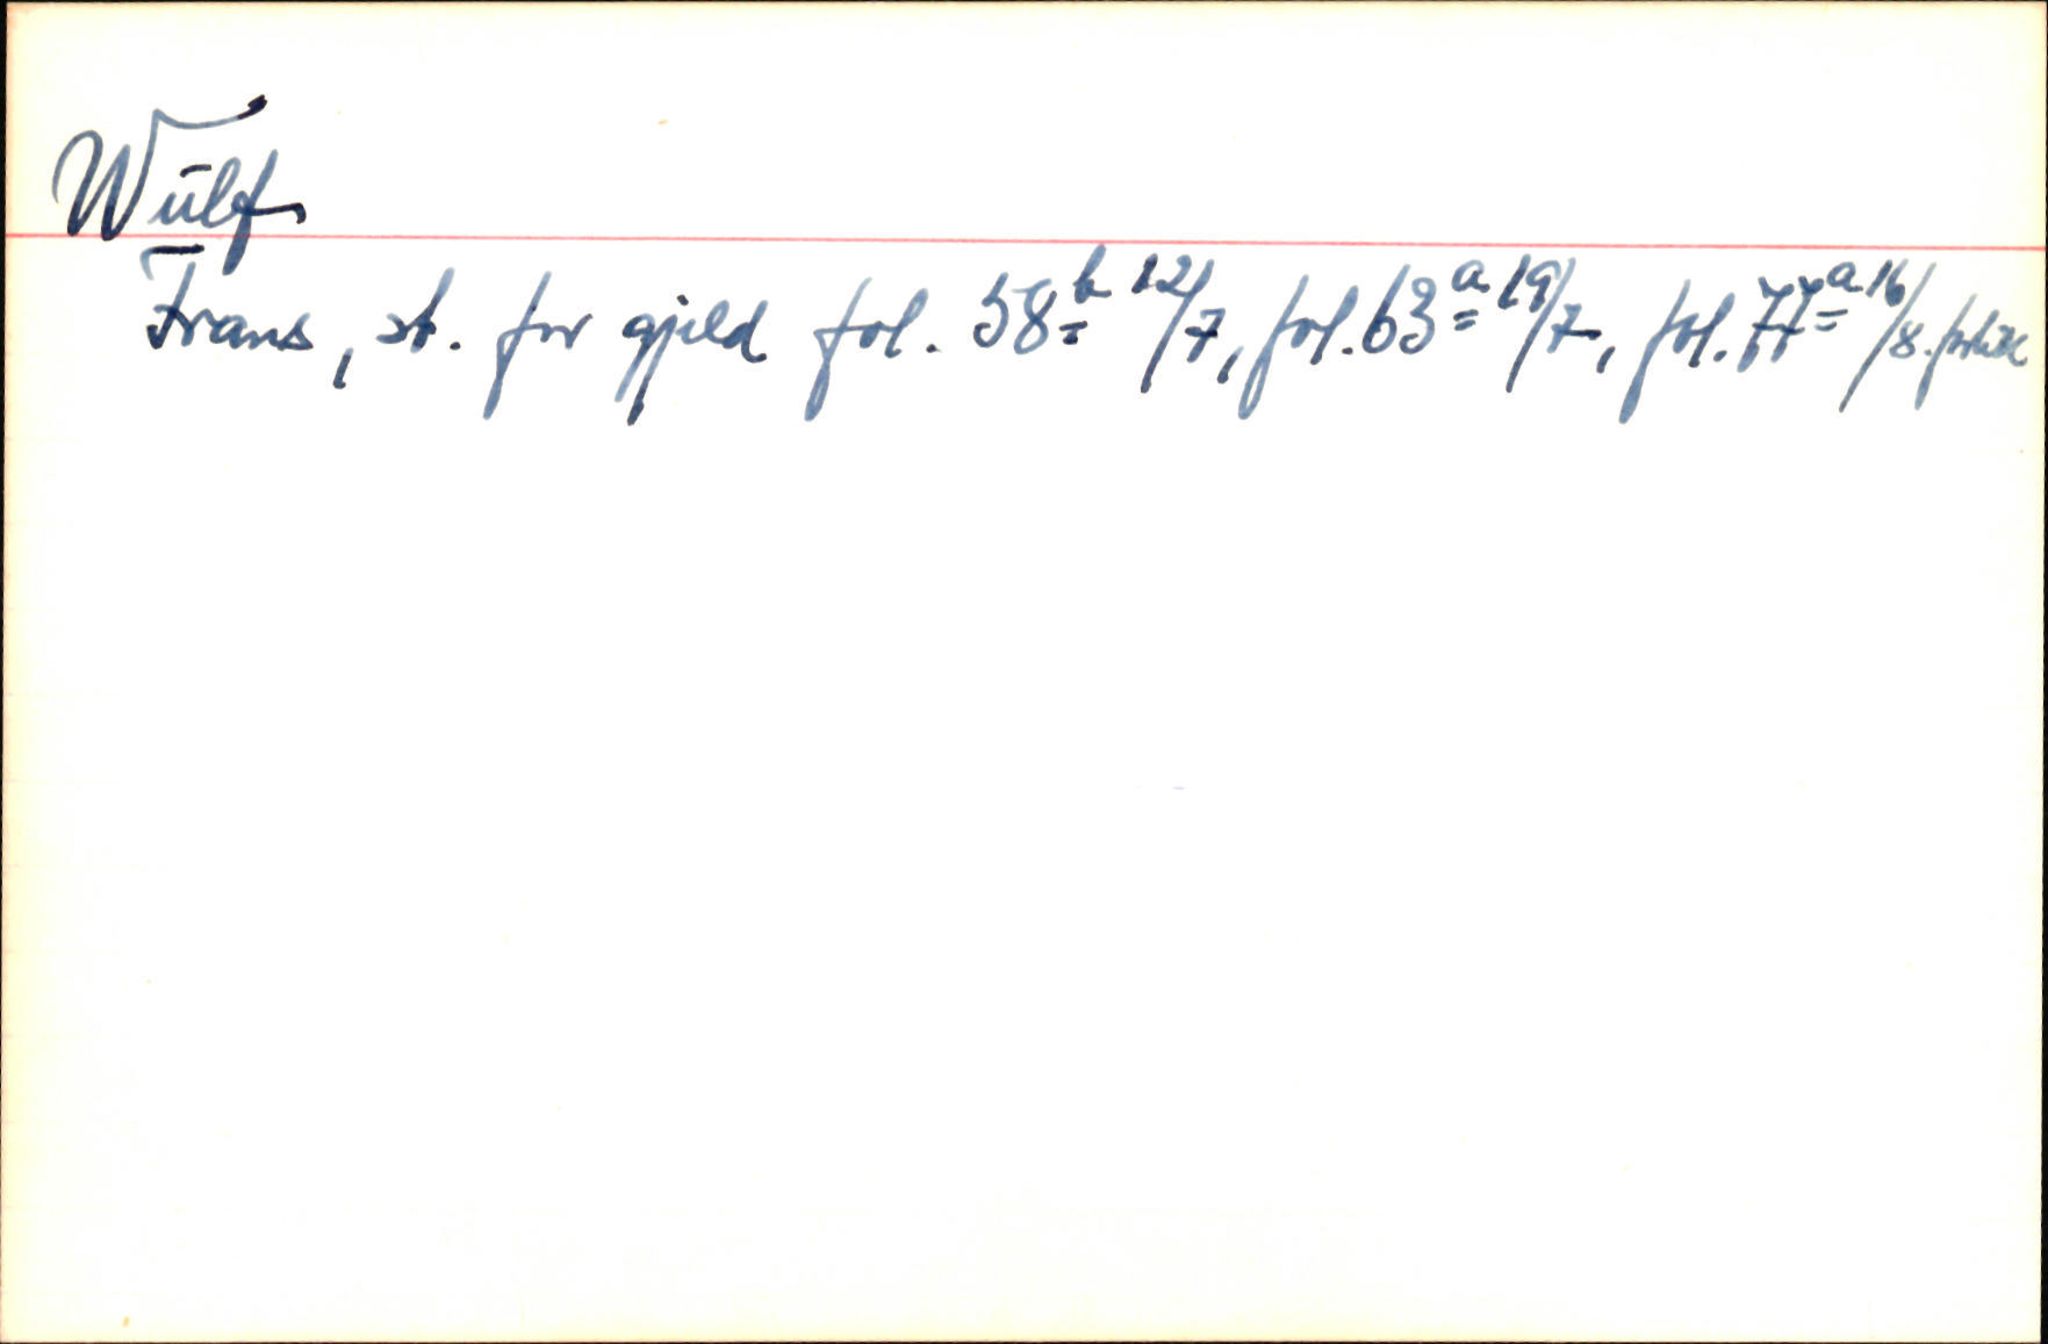 Wulf
Frans, st. for gjeld fol. 58b 12/7, fol. 63a 19/7, fol. 77a 16/8. forlik